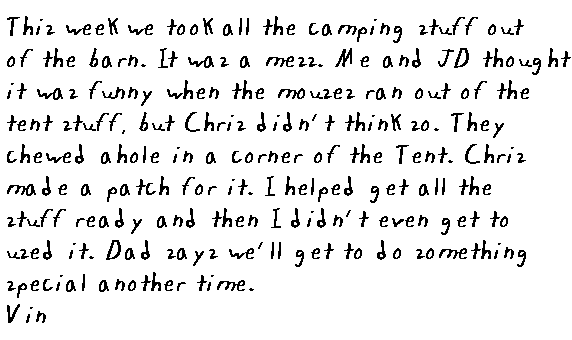 This week we took all the camping stuff out
of the barn. It was a mess. Me and JD thought
it was funny when the mouses ran out of the
tent stuff, but Chris didn't think so. They
chewed ahole in a corner of the Tent. Chris
made a patch for it. I helped get all the
stuff ready and then I didn't even get to
used it. Dad says we'll get to do something
special another time.
Vin